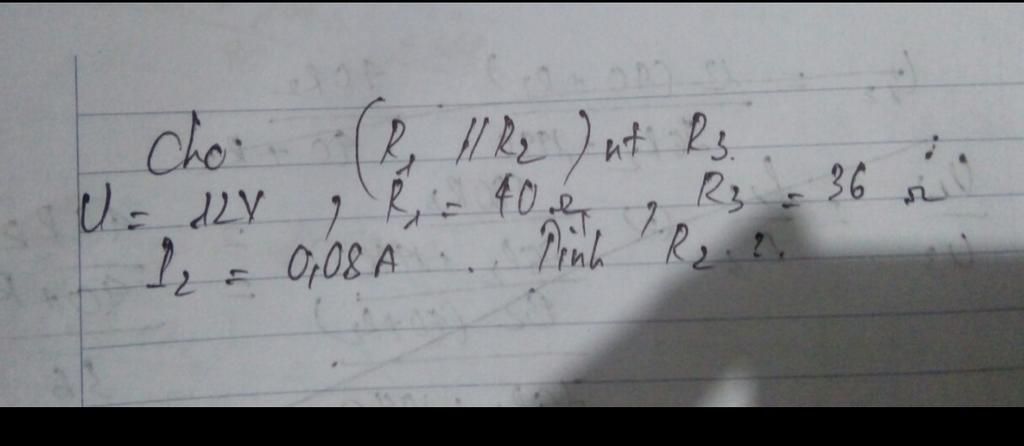 Cho: (R₁ // R₂) nt R₃.
U = 12V , R₁ = 40 Ω , R₃ = 36 Ω
I₂ = 0,08A . Tính R₂ ?.